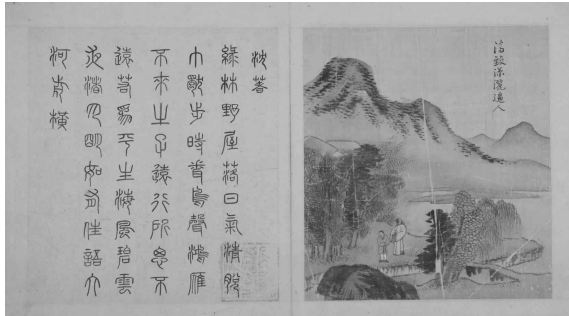 沈著
綠林野屋落日氣清脫
巾獨步時聞鳥聲鴻雁
不來之子遠行所思不
遠若為平生海風碧雲
夜渚月明如有佳語大
河前橫